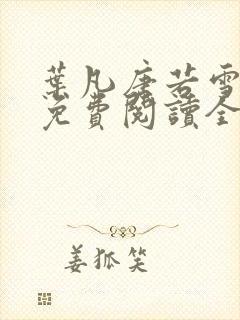 葉凡唐若雪
免費閱讀全
姜狐笑